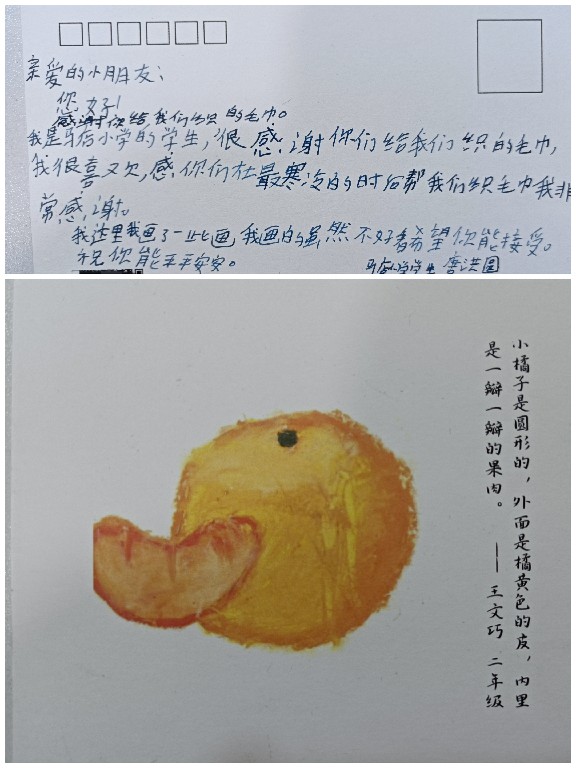 亲爱的小朋友：
您好！
感谢你给我们织的毛巾。
我是马店小学的学生，很感谢你们给我们织的毛巾，
我很喜又欠，感你们在最寒冷的时后帮我们织毛巾我非
常感谢。
我这里我画了一些画，我画的虽然不好看希望你能接受。
祝你能平平安安。
马店小学学生 唐洪圆
小橘子是圆形的，外面是橘黄色的皮，内里
是一瓣一瓣的果肉。 —— 王文巧 二年级